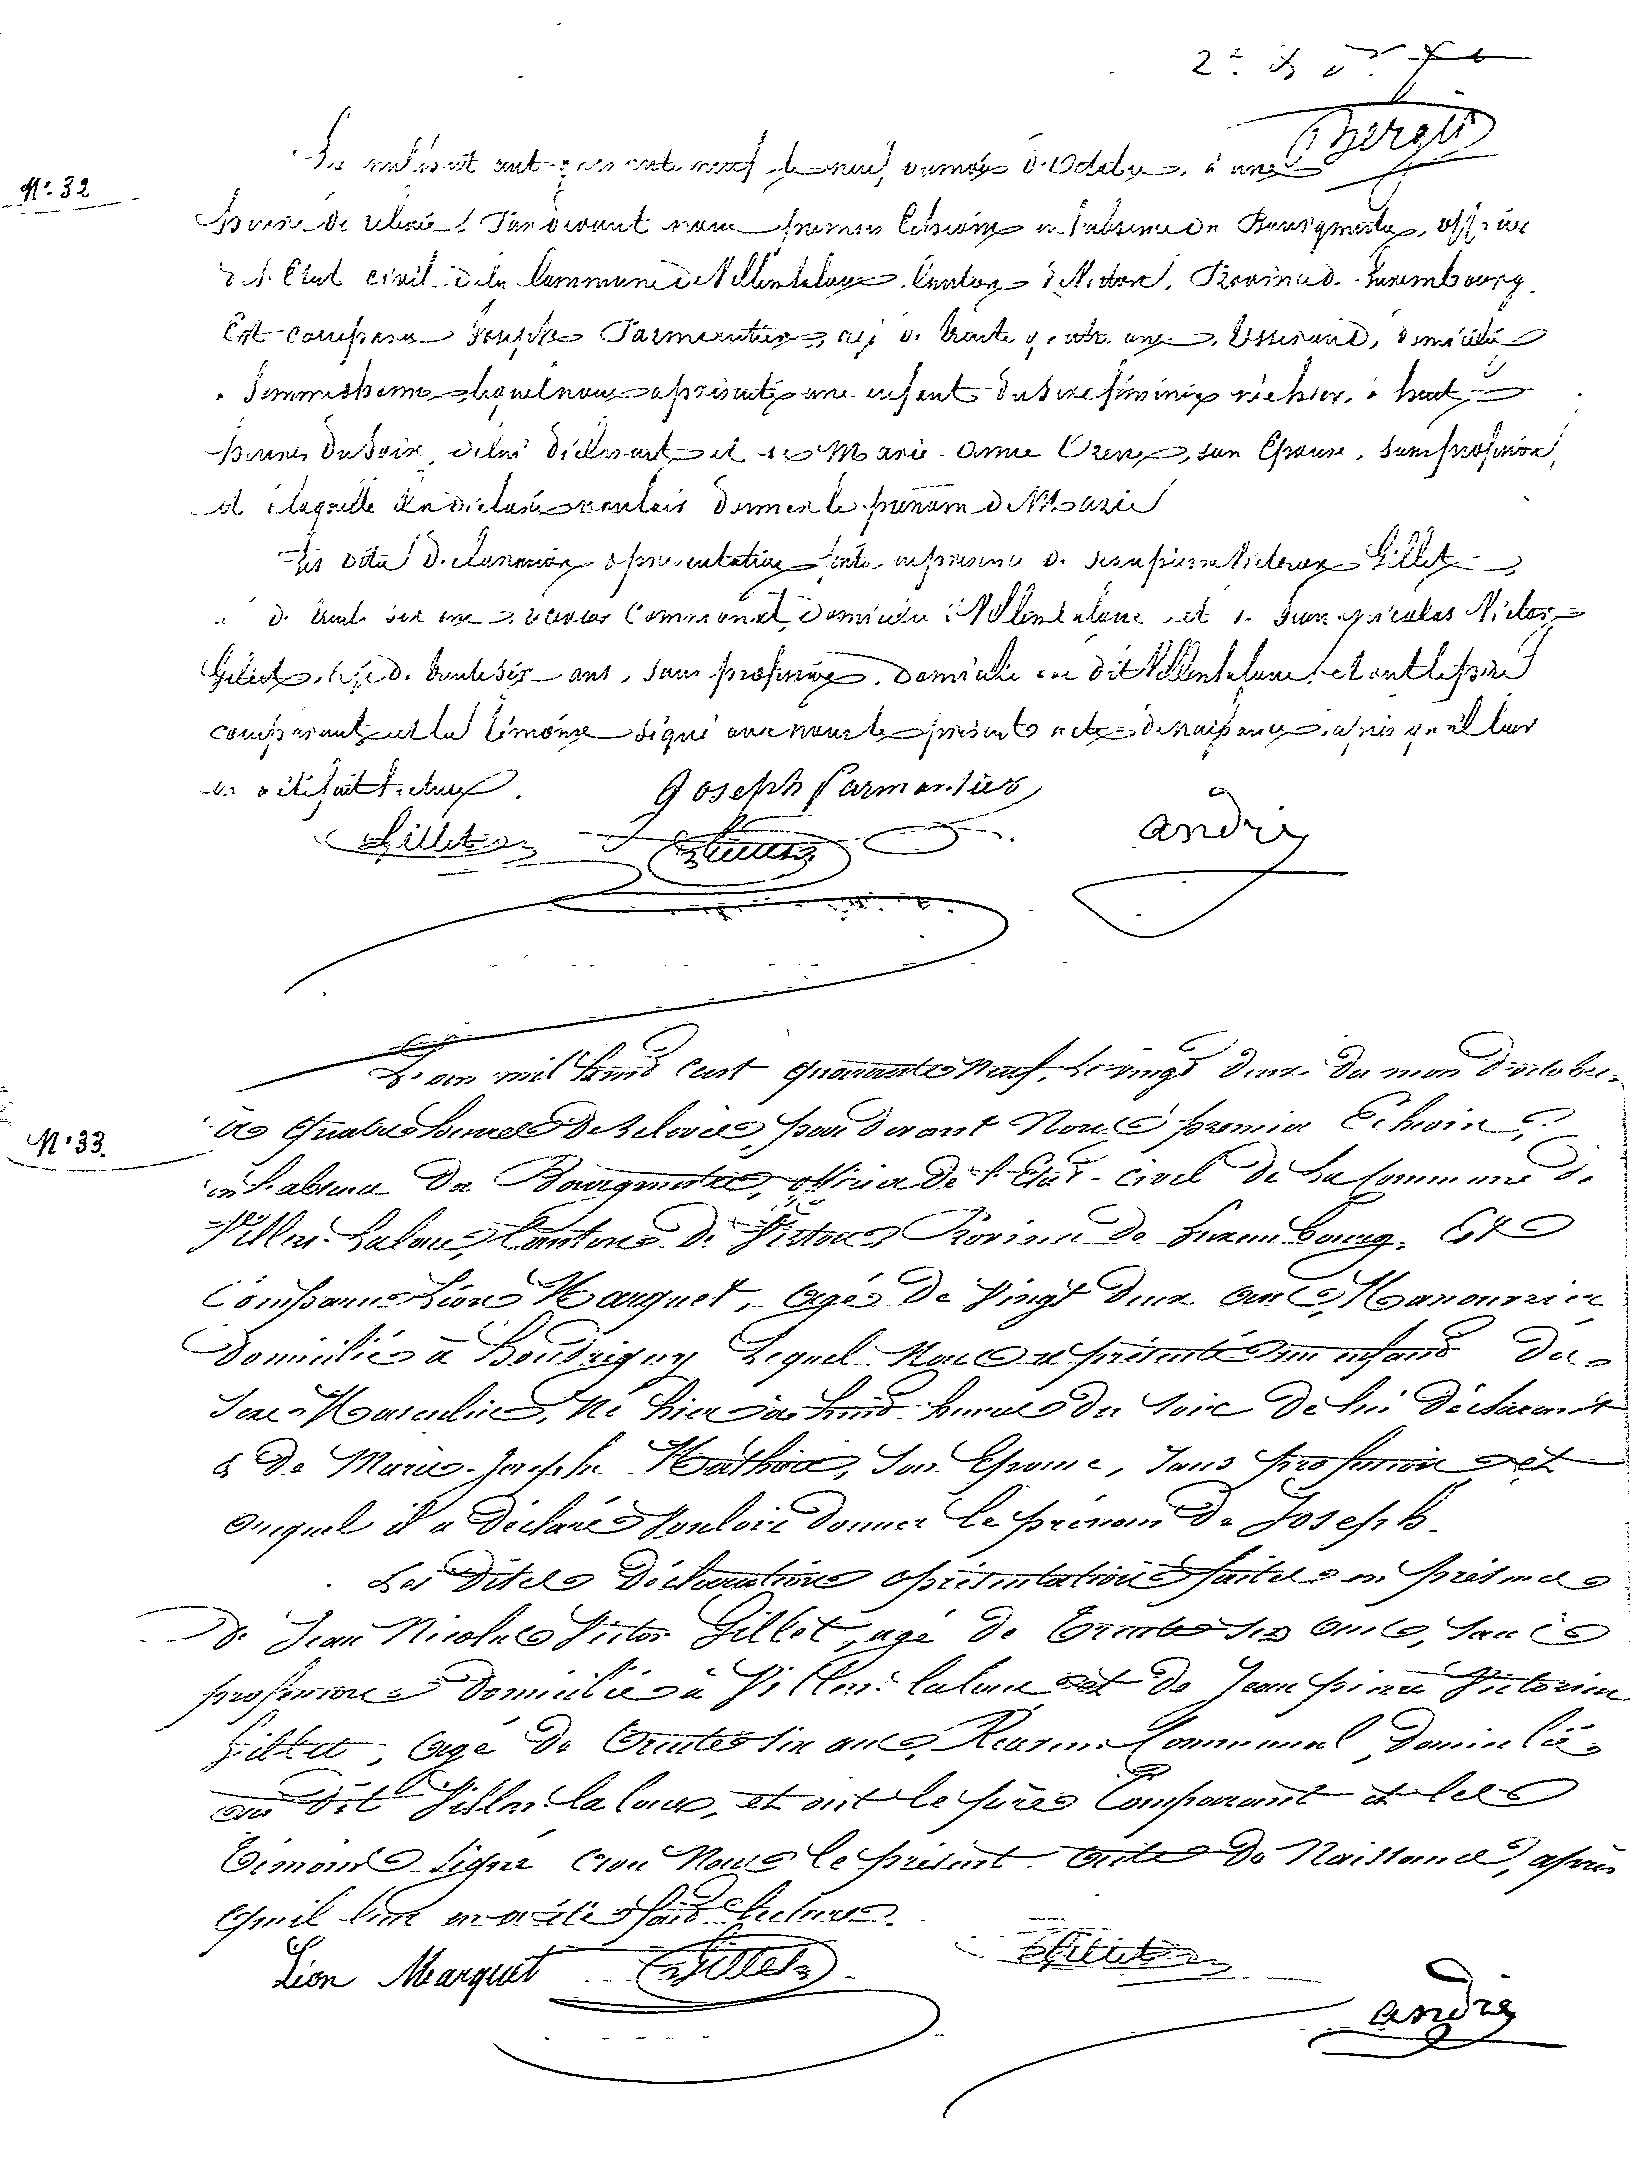 N° 32
L'an mil huit cent quarante neuf le neuf du mois d'Octobre, à une
heure de relevée, Pardevant nous premier Echevin en l'absence du Bourgmestre, officier
de l'Etat civil de la Commune de Villers-la-loue, Canton de Virton, Province de Luxembourg.
Est comparu Joseph Parmentier, agé de trente quatre ans, Tisserand, domicilié
à Sommethonne lequel nous a présenté une enfant du sexe féminin née hier, à huit
heures du soir, de lui déclarant et de Marie-Anne son Epouse, sans profession,
et à laquelle il a déclaré vouloir donner le prénom de Marie
Les dites déclaration & présentation faites en présence de Jean pierre Victorien Gillet
agé de trente six ans receveur Communal, domicilié à Villers-la-loue et de Jean nicolas Victor
Gillet, agé de trente six ans, sans profession, domicilié au dit Villers-la-loue, et ont le père
comparant et les témoins signé avec nous le présent acte de naissance, après qu'il leur
en a été fait lecture.
Joseph Parmentier
Gillet Gillet andré
N° 33.
L'an mil huit cent quarante neuf, le vingt deux du mois d'octobre,
à quatre heures de relevée, par devant Nous premier Echevin,
en l'absence du Bourgmestre, officier de l'Etat-civil de la Commune de
Villers-la-loue, Canton de Virton, Province de Luxembourg. Est
Comparu Léon Marquet, agé de vingt deux ans, Manouvrier
domicilié à Houdrigny Lequel Nous a présenté un enfant du
sexe Masculin, né hier à huit heures du soir de lui déclarant
& de Marie-Joseph Mathieu, son Epouse, sans profession et
auquel il a déclaré vouloir donner le prénom de Joseph.
Les dites déclaration & présentation faites en présence
de Jean Nicolas Victor Gillet, agé de trente six ans, sans
profession domicilié à Villers-la-loue et de Jean pierre Victorien
Gillet, agé de trente six ans, Receveur Communal, domicilié
au dit Villers-la-loue, et ont le père Comparant et les
témoins signé avec Nous le présent acte de Naissance, après
qu'il leur en a été fait lecture.
Léon Marquet Gillet Gillet
andré